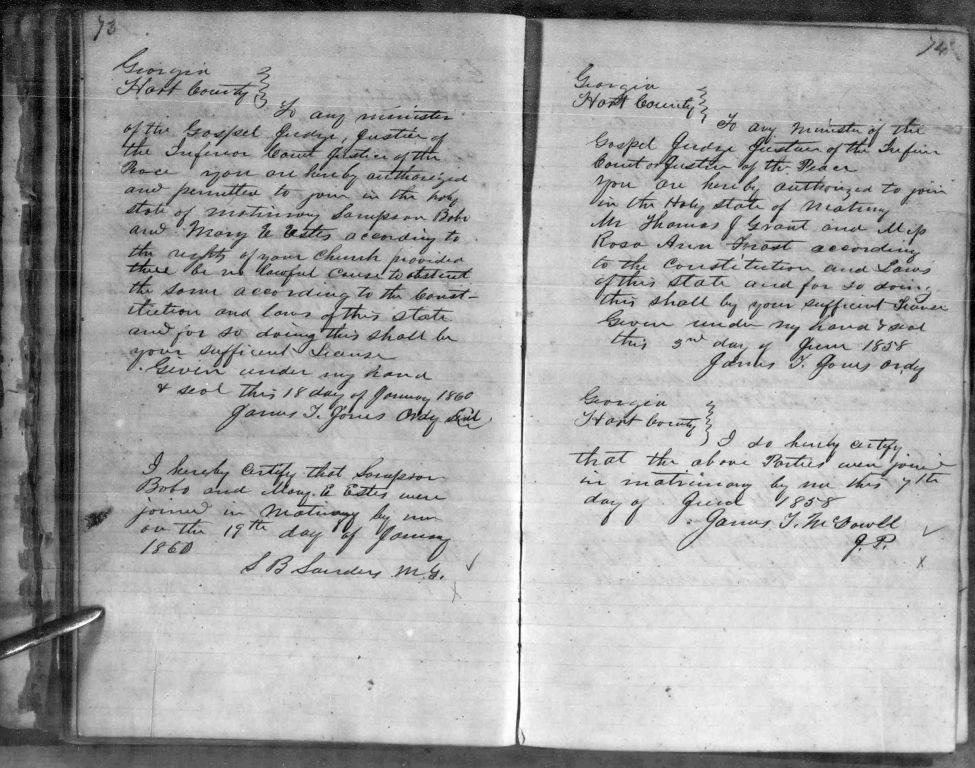 73
Georgia
Hart County
To any minister
of the Gospel Judge, Justice of
the Inferior Court Justice of the
Peace you are hereby authorized
and permitted to join in the holy
state of matrimony Sampson Bobo
and Mary E Estes according to
the rights of your Church provided
there be no lawful cause to
the same according to the Const-
itution and laws of this state
and for so doing this shall be
your sufficent License
Given under my hand
& seal this 18 day of January 1860
James T. Jones Ordy Seal
I hereby certify that Sampson
Bobo and Mary. E. Estes were
joined in Matrimony by me
on the 19th day of January
1860
S B Sanders M.G.
74
Georgia
Hart County
To any Minister of the
Gospel Judge Justice of the Inferior
Court or Justice of the Peace
You are hereby authorized to join
in the Holy state of Matrimony
Mr Thomas J Grant and Miss
Rosa Ann according
to the Constitution and Laws
of this state and for so doing
this shall by your sufficent License
Given under my hand & seal
this 3rd day of June 1858
James T. Jones Ordy
Georgia
Hart County
I do hereby certify
that the above Parties were joined
in matrimony by me this 7th
day of June 1858
James T. McDowell
J. P.